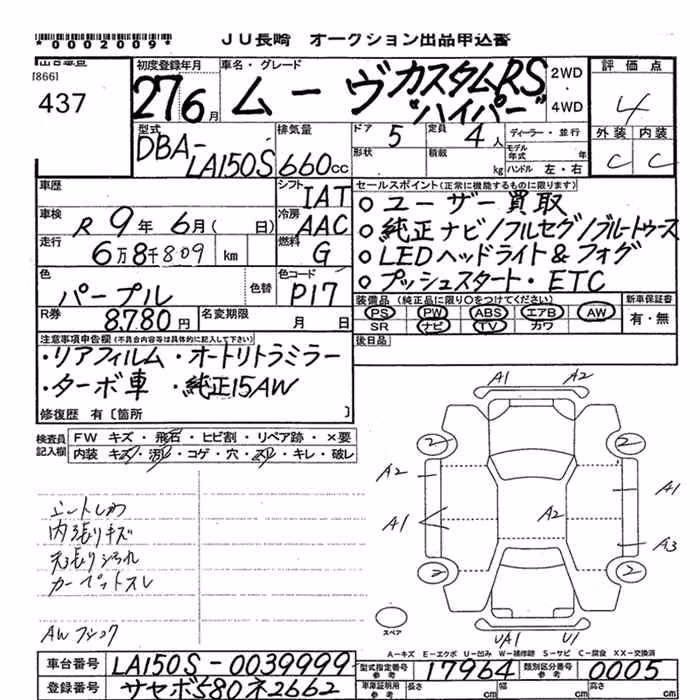 *0002009*
JU長崎 オークション出品申込書
[866]
437
初度登録年月
27 6月
車名・グレード
ムーヴ カスタムRS
"ハイパー"
2WD
・
4WD
評価点
4
外装 内装
C C
型式
DBA-
LA150S
排気量
660cc
ドア 5
形状
定員 4人
積載 kg
ディーラー・並行
モデル年式 年
ハンドル 左・右
車歴
車検 R 9年 6月( 日)
走行 6万8千809 km
シフト IAT
冷房 AAC
燃料 G
色 パープル 色替
色コード P17
R券 8,780円
名変期限 月 日
セールスポイント(正常に機能するものに限ります)
○ユーザー買取
○純正ナビ/フルセグ/ブルートゥース
○LEDヘッドライト&フォグ
○プッシュスタート・ETC
装備品(純正品に限り○をつけてください)
PS PW ABS エアB AW
SR ナビ TV カワ
新車保証書
有・無
後日品
注意事項申告欄(不具合内容等は具体的に記入して下さい)
・リアフィルム・オートリトラミラー
・ターボ車 ・純正15AW
修復歴 有〔箇所 〕
検査員記入欄
FW キズ・飛石・ヒビ割・リペア跡・×要
内装 キズ・汚レ・コゲ・穴・スレ・キレ・破レ
内張りキズ
天張りヨゴレ
カーペットスレ
A1 A2
2 2
A2 A1
A1 A2
A3
2 2
UA1 U1
スペア
A-キズ E-エクボ U-凹み W-補修跡 S-サビ C-腐食 XX-交換済
車台番号 LA150S-0039999
登録番号 サセボ580ネ2662
型式指定番号 参考 17964
類別区分番号 参考 0005
車庫証明用 参考 長さ cm 幅 cm 高さ cm